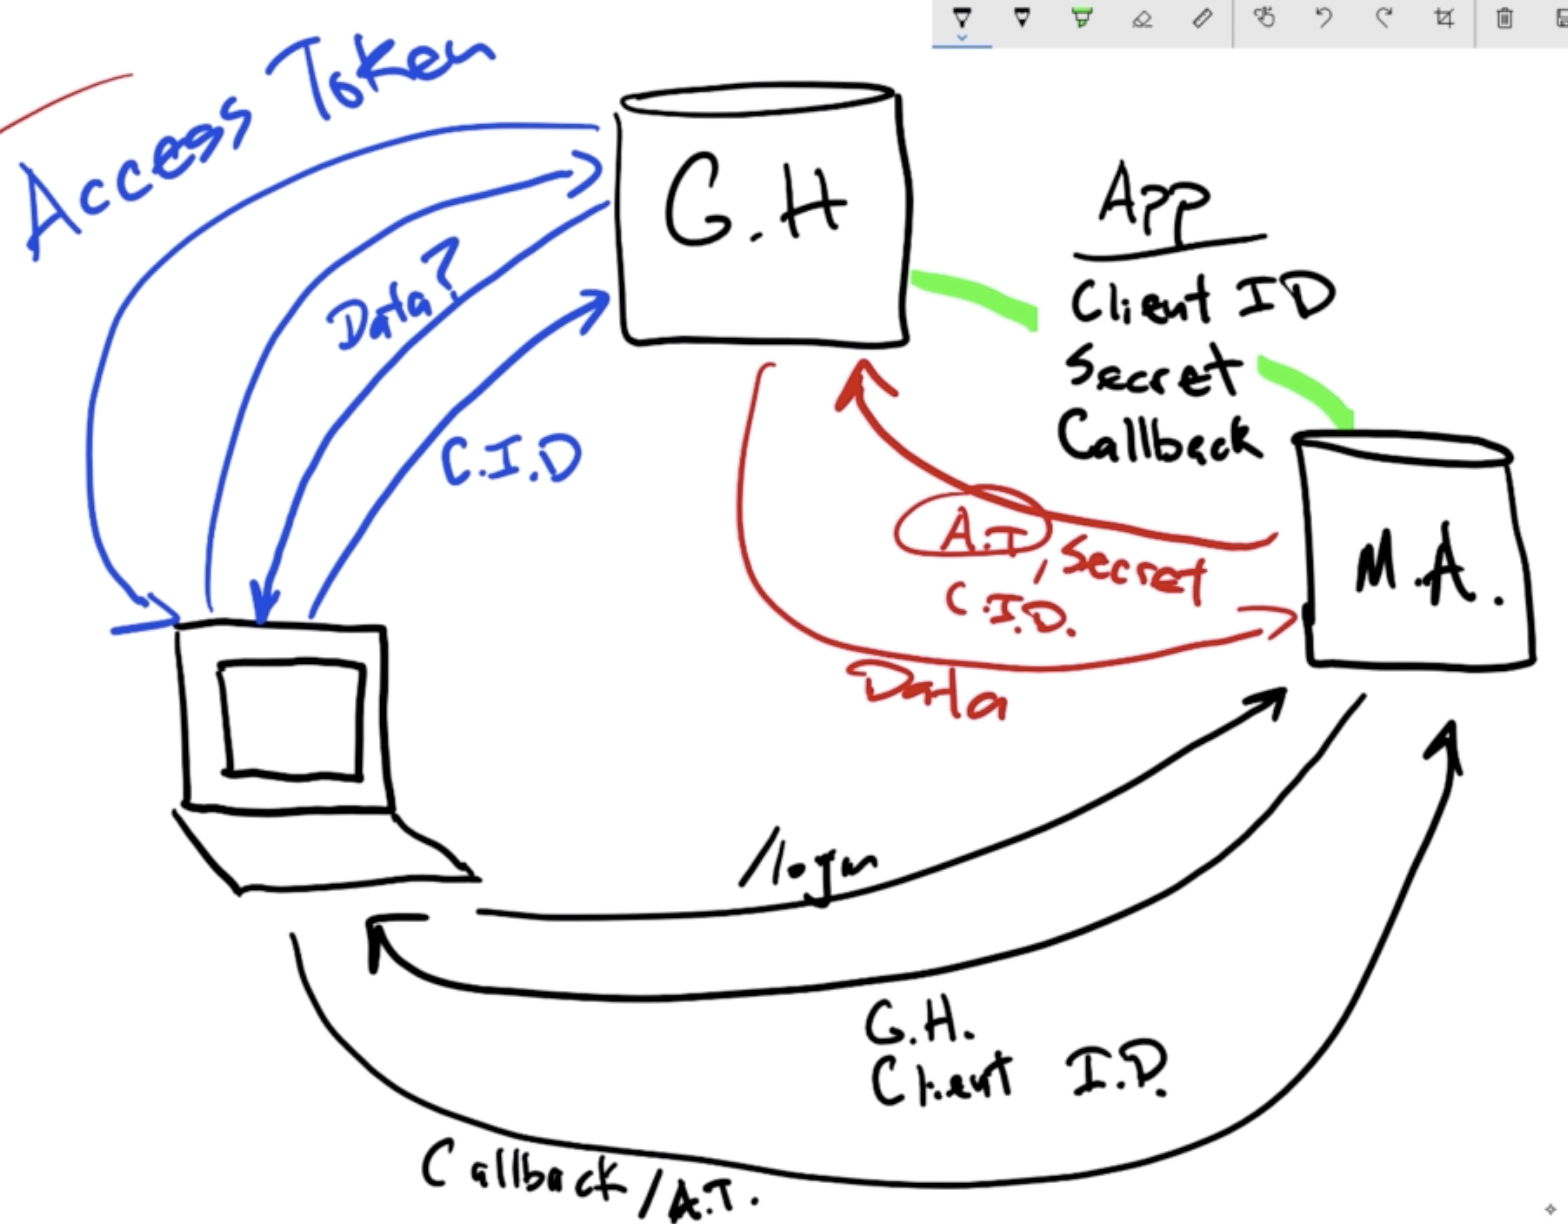 Access Token
G.H
App
Client ID
Secret
Callback
Data?
C.I.D
A.T, Secret
C.I.D.
M.A.
Data
/login
G.H.
Client I.D.
Callback/A.T.